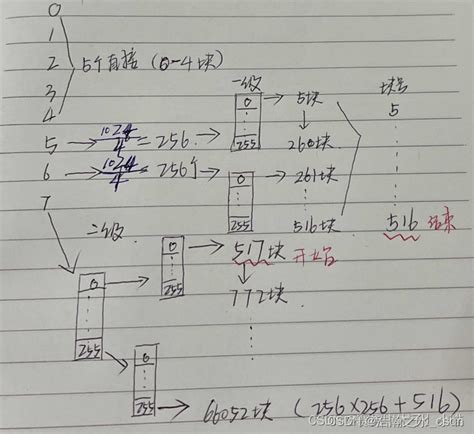 0
1
2 5个直接 (0-4块)
3
4
一级 块号
0 5块 5
5 1024/4 = 256 255 260块
6 1024/4 = 256个 0 261块
7 255 516块 516 结束
二级 0 517块 开始
0 255 772块
255 0
255 66052块 (256×256+516)